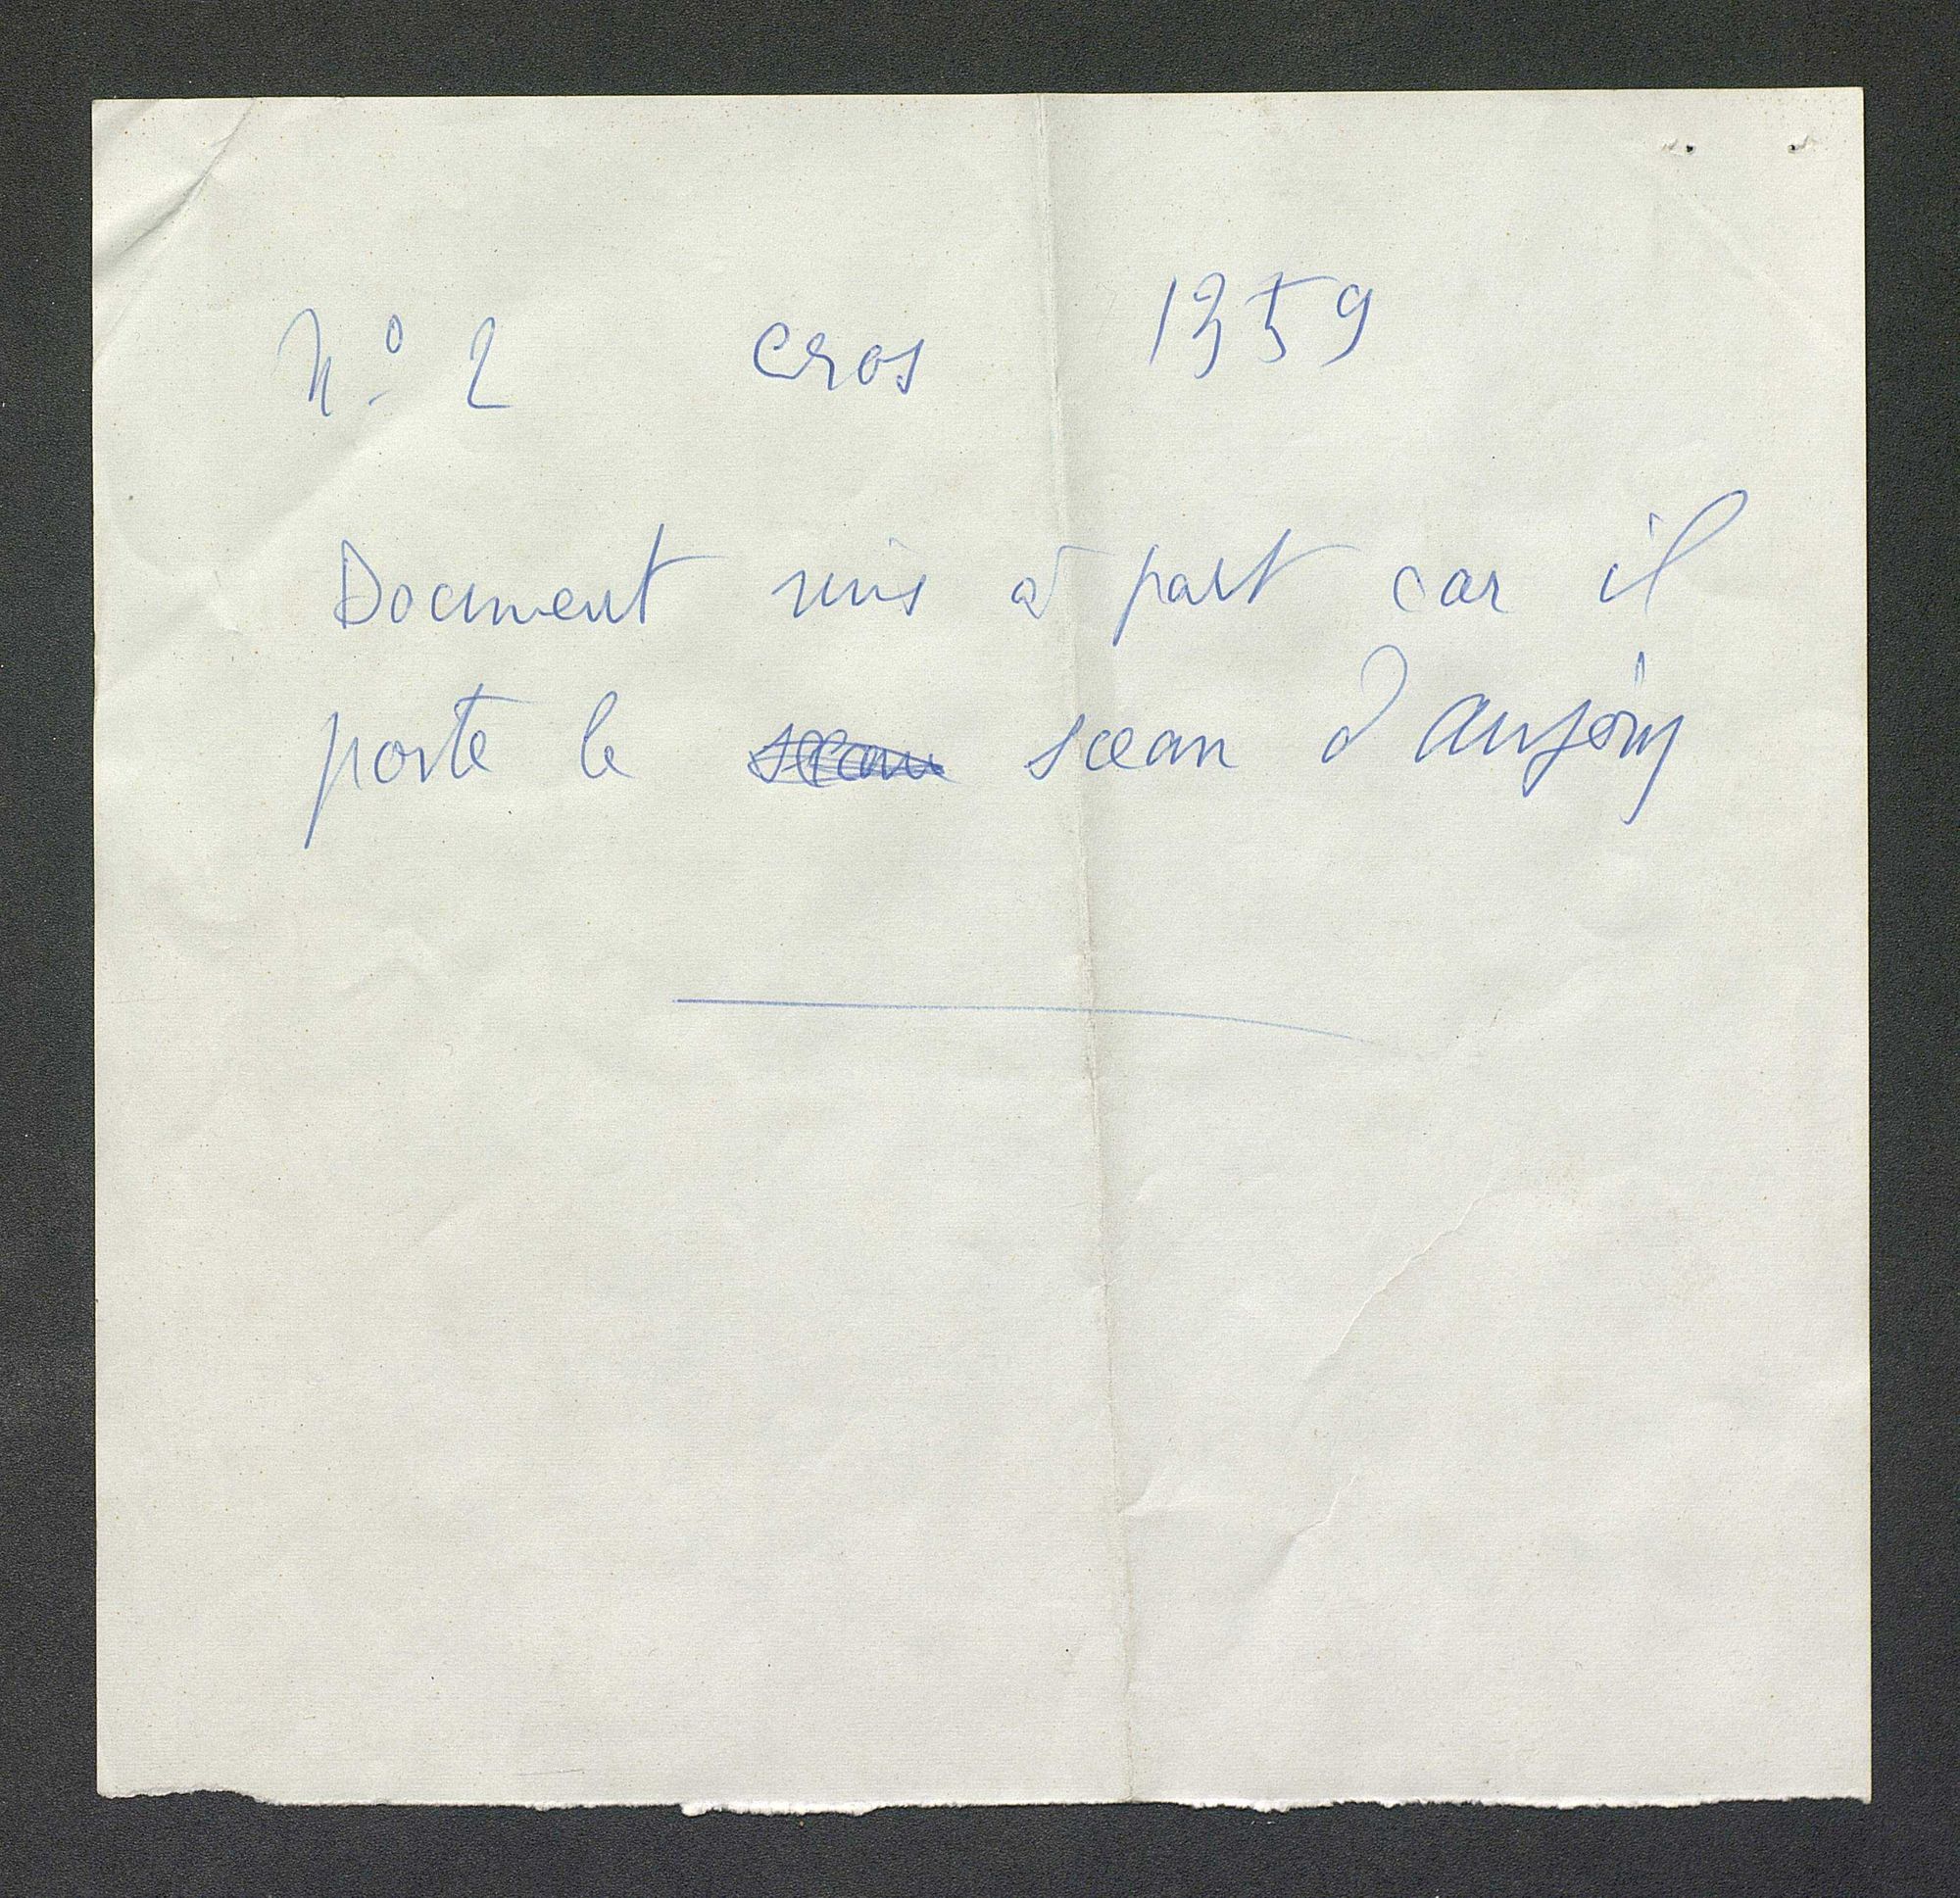 N° 2 cros 1359
Document mis à part car il
porte le sceau d'Anjony